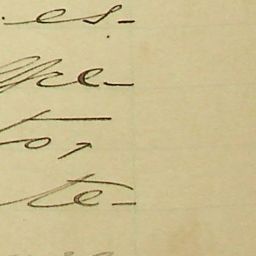 es-
pe-
to,
te-